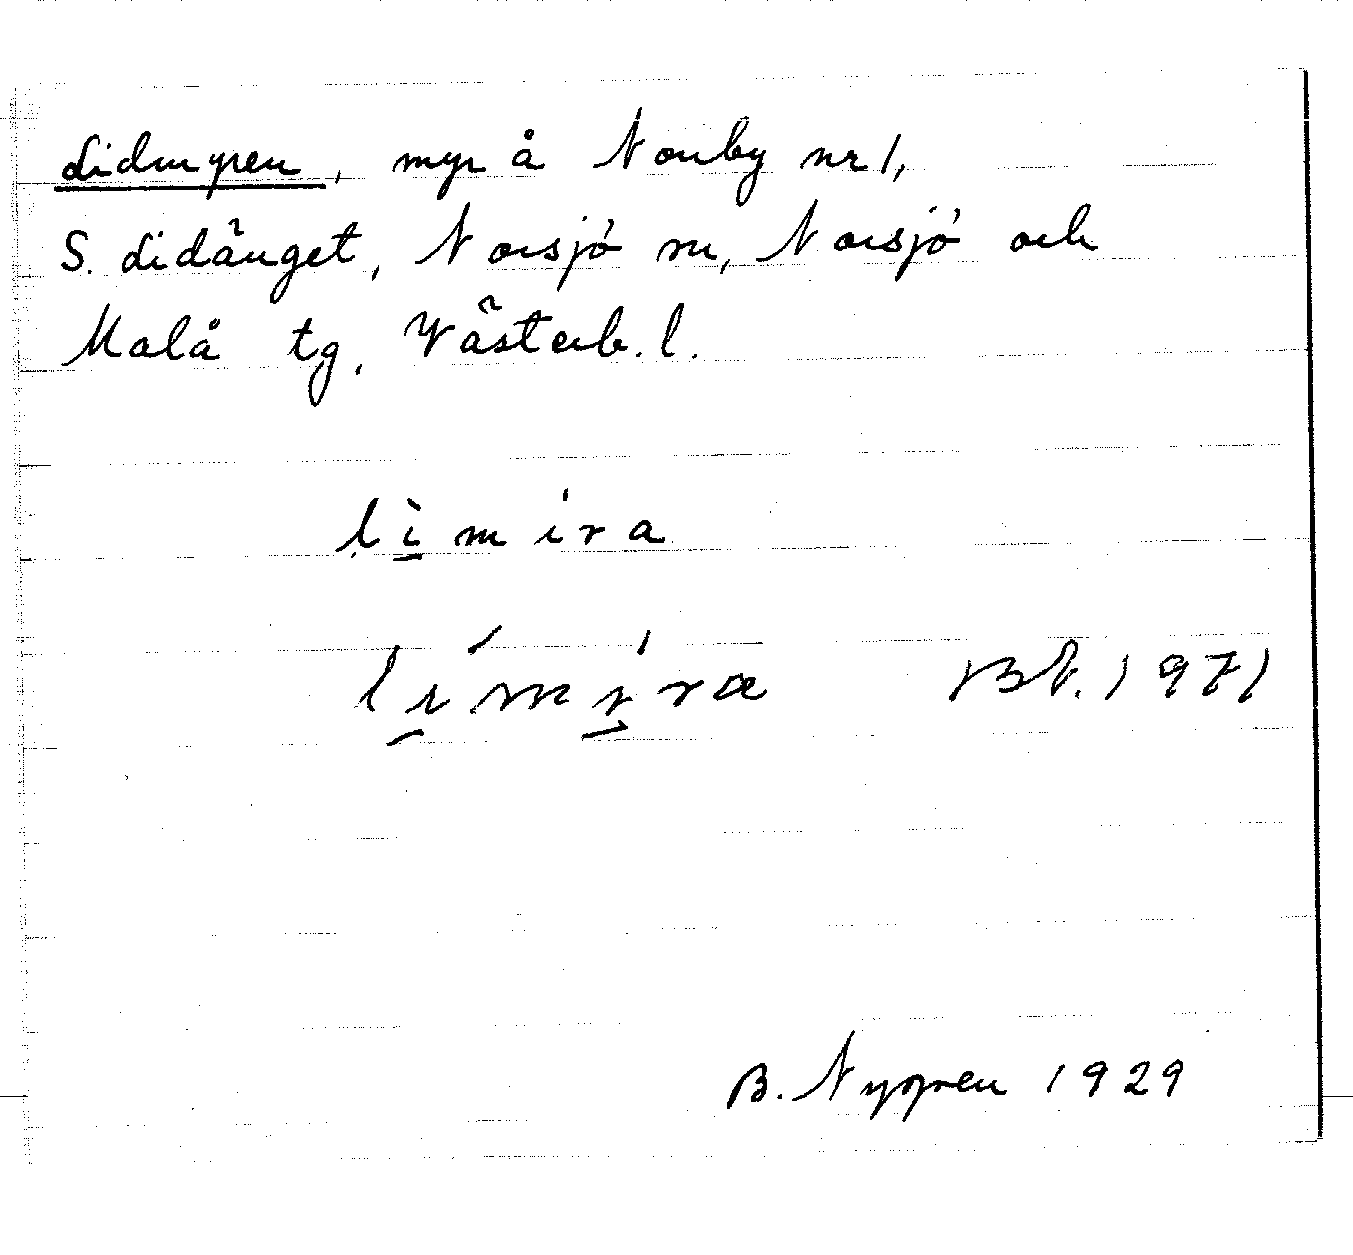 Lidmyren, myr å Norrby nr 1,
S. Lidänget, Norsjö sn, Norsjö och
Malå tg, Västerb. l.
lìmíra
límíra Bt. 1971
B. Nygren 1929